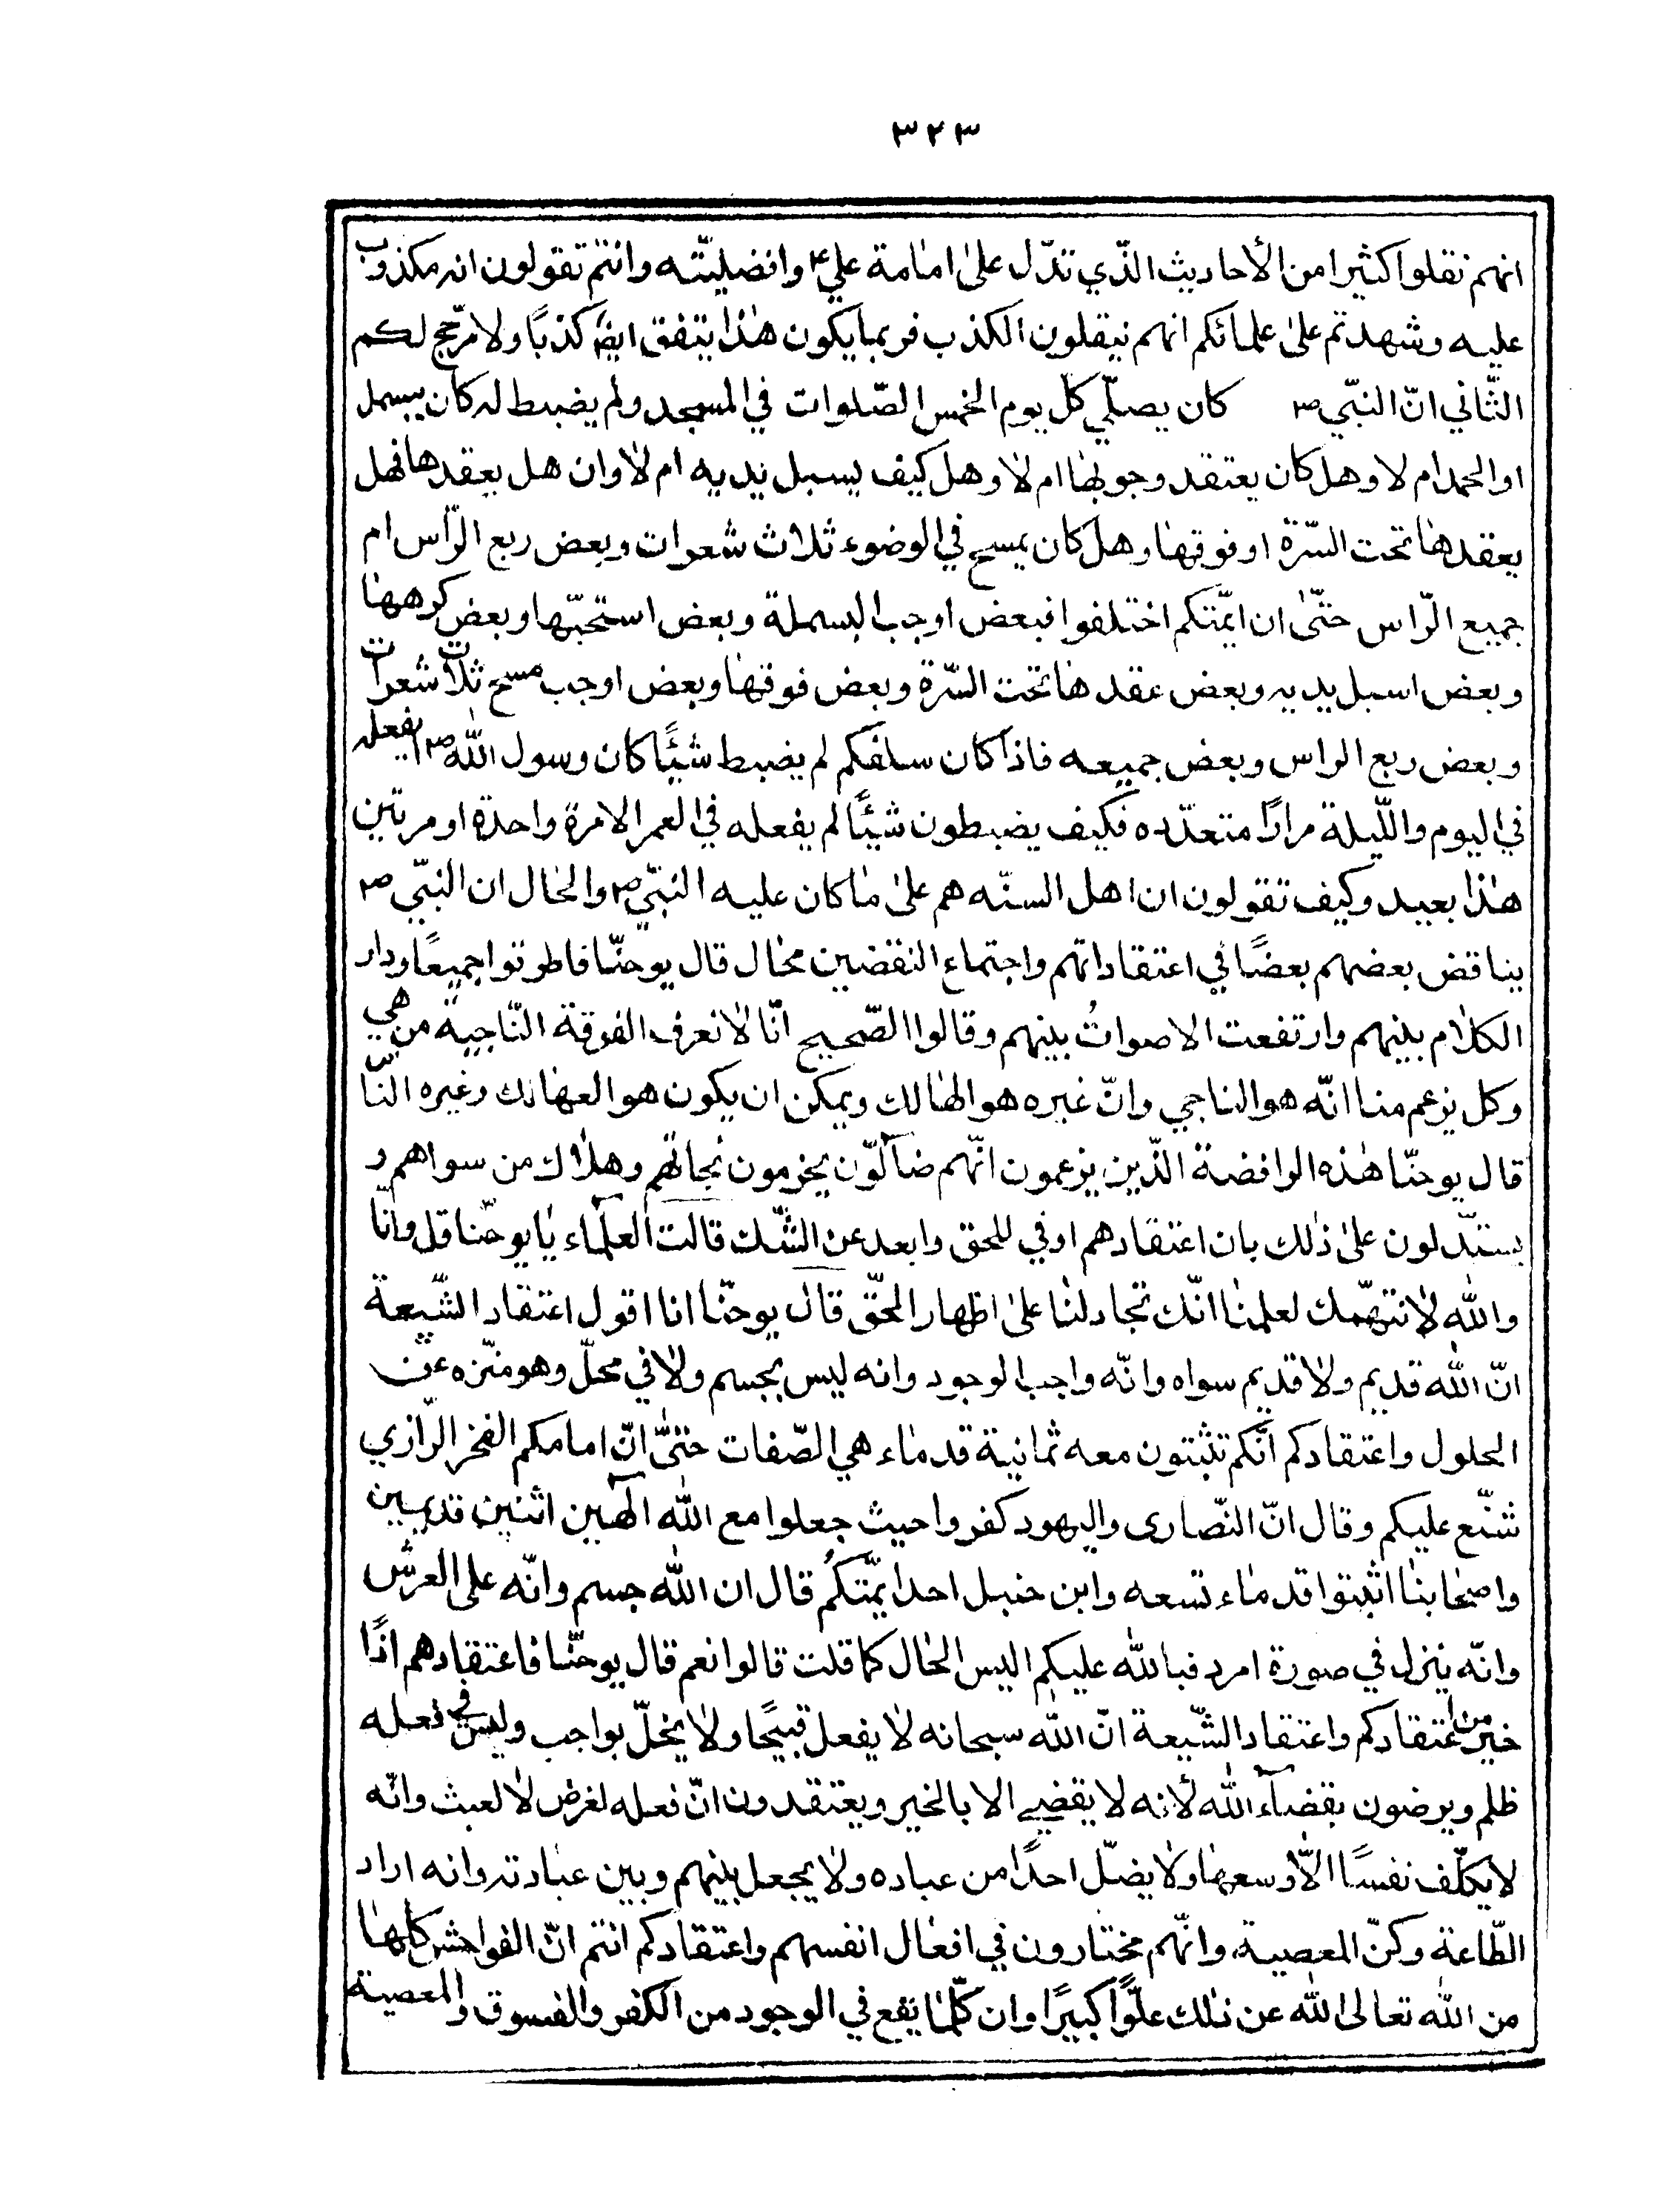 ٣٢٣
انهم نقلوا كثيرا من الأحاديث الذّي تدّل علىٰ امٰامة علي ع وافضليّته وانتم تقولون انه مكذوب
عليه وشهدتم علىٰ علمائكم انهم نيقلون الكذب فربما يكون هٰذا يتفق ايضً كذبًا ولا مرّجح لكم
الثّاني انّ النبّي ص كان يصلّي كلّ يوم الخمس الصّلوات في المسجد ولم يضبط له كان يبسمل
او الحمد ام لا وهل كان يعتقد وجوبهٰا ام لٰا وهل كيف يسبل يديه ام لٰا وان هل يعقدها فهل
يعقدهٰا تحت السّرّة او فوقهٰا وهل كان يمسح في الوضوء ثلاث شعرات وبعض ربع الرّاس ام
جميع الرّاس حتّىٰ ان ايمّتكم اختلفوا فبعض اوجب البسملة وبعض استحبّها وبعض كرههٰا
وبعض اسبل يديه وبعض عقدهٰا تحت السّرّة وبعض فوقهٰا وبعض اوجب مسح ثلاث شعرات
وبعض ربع الراس وبعض جميعه فاذا كان سلفكم لم يضبط شيئًا كان وسول اللّٰه ص يفعله
في اليوم واللّيلة مرارًا متعدّده فكيف يضبطون شيئًا لم يفعله في العمر الا مرّة واحدة او مرتين
هٰذا بعيد وكيف تقولون ان اهل السنّه هم علىٰ مٰا كان عليه النبّي ص والحٰال ان النبّي ص
يناقض بعضهم بعضًا في اعتقاداتهم واجتماع النقضين محٰال قال يوحنّا فاطرقوا جميعًا ودار
الكلٰام بينهم وارتفعت الاصواتُ بينهم وقالوا الصّحيح انّا لٰا نعرف الفرقة النّاجية من هي
وكل يزعم منا انّه هو الناجي وانّ غيره هو الهٰالك ويمكن ان يكون هو الهٰالك وغيره النّا
قال يوحنّا هٰذه الرافضة الذّين يزعمون انّهم ضآلّون يجزمون نجاتهم وهلٰاك من سواهم و
يستدّلون علىٰ ذٰلك بان اعتقادهم اوفي للحق وابعد عن الشّك قالت العلمٰآء يٰا يوحّنا قل وانّا
واللّٰه لٰا نتهّمك لعلمنٰا انّك تجادلنٰا علىٰ اظهار الحقّ قال يوحنّا انا اقول اعتقاد الشّيعة
انّ اللّٰه قديم ولٰا قديم سواه وانّه واجب الوجود وانه ليس بجسم ولٰا في محلّ وهو منّزه عن
الحلول واعتقادكم انّكم تثبتون معه ثمانية قدمٰاء هي الصّفات حتىّٰ انّ امامكم الفخر الرّازي
شنّع عليكم وقال انّ النّصاری واليهود كفروا حيث جعلوا مع اللّٰه الٓهين اثنين قديمين
واصحٰابنٰا اثبتوا قدمٰاء تسعه وابن حنبل احد ايمّتكم قال ان اللّٰه جسم وانّه علی العرش
وانّه ينزل في صورة امرد فباللّٰه عليكم اليس الحٰال كما قلت قالوا نعم قال يوحنّا فاعتقادهم اذًا
خير من اعتقادكم واعتقاد الشّيعة انّ اللّٰه سبحانه لٰا يفعل قبيحًا ولٰا يخلّ بواجب وليس في فعله
ظلم ويرضون بقضٰآء اللّٰه لأنه لا يقضي الا بالخير ويعتقدون انّ فعله لغرض لٰا لعبث وانّه
لا يكلّف نفسًا الّا وسعهٰا ولٰا يضلّ احدًا من عباده ولٰا يجعل بينهم وبين عبٰادته وانه اراد
الطّاعة وكرّ المعصية وانّهم مختارون في افعٰال انفسهم واعتقادكم انتم انّ الفواحش كلهٰا
من اللّٰه تعالىٰ اللّٰه عن ذٰلك علّوًا كبيرًا وان كلّمٰا يقع في الوجود من الكفر والفسوق والمعصية